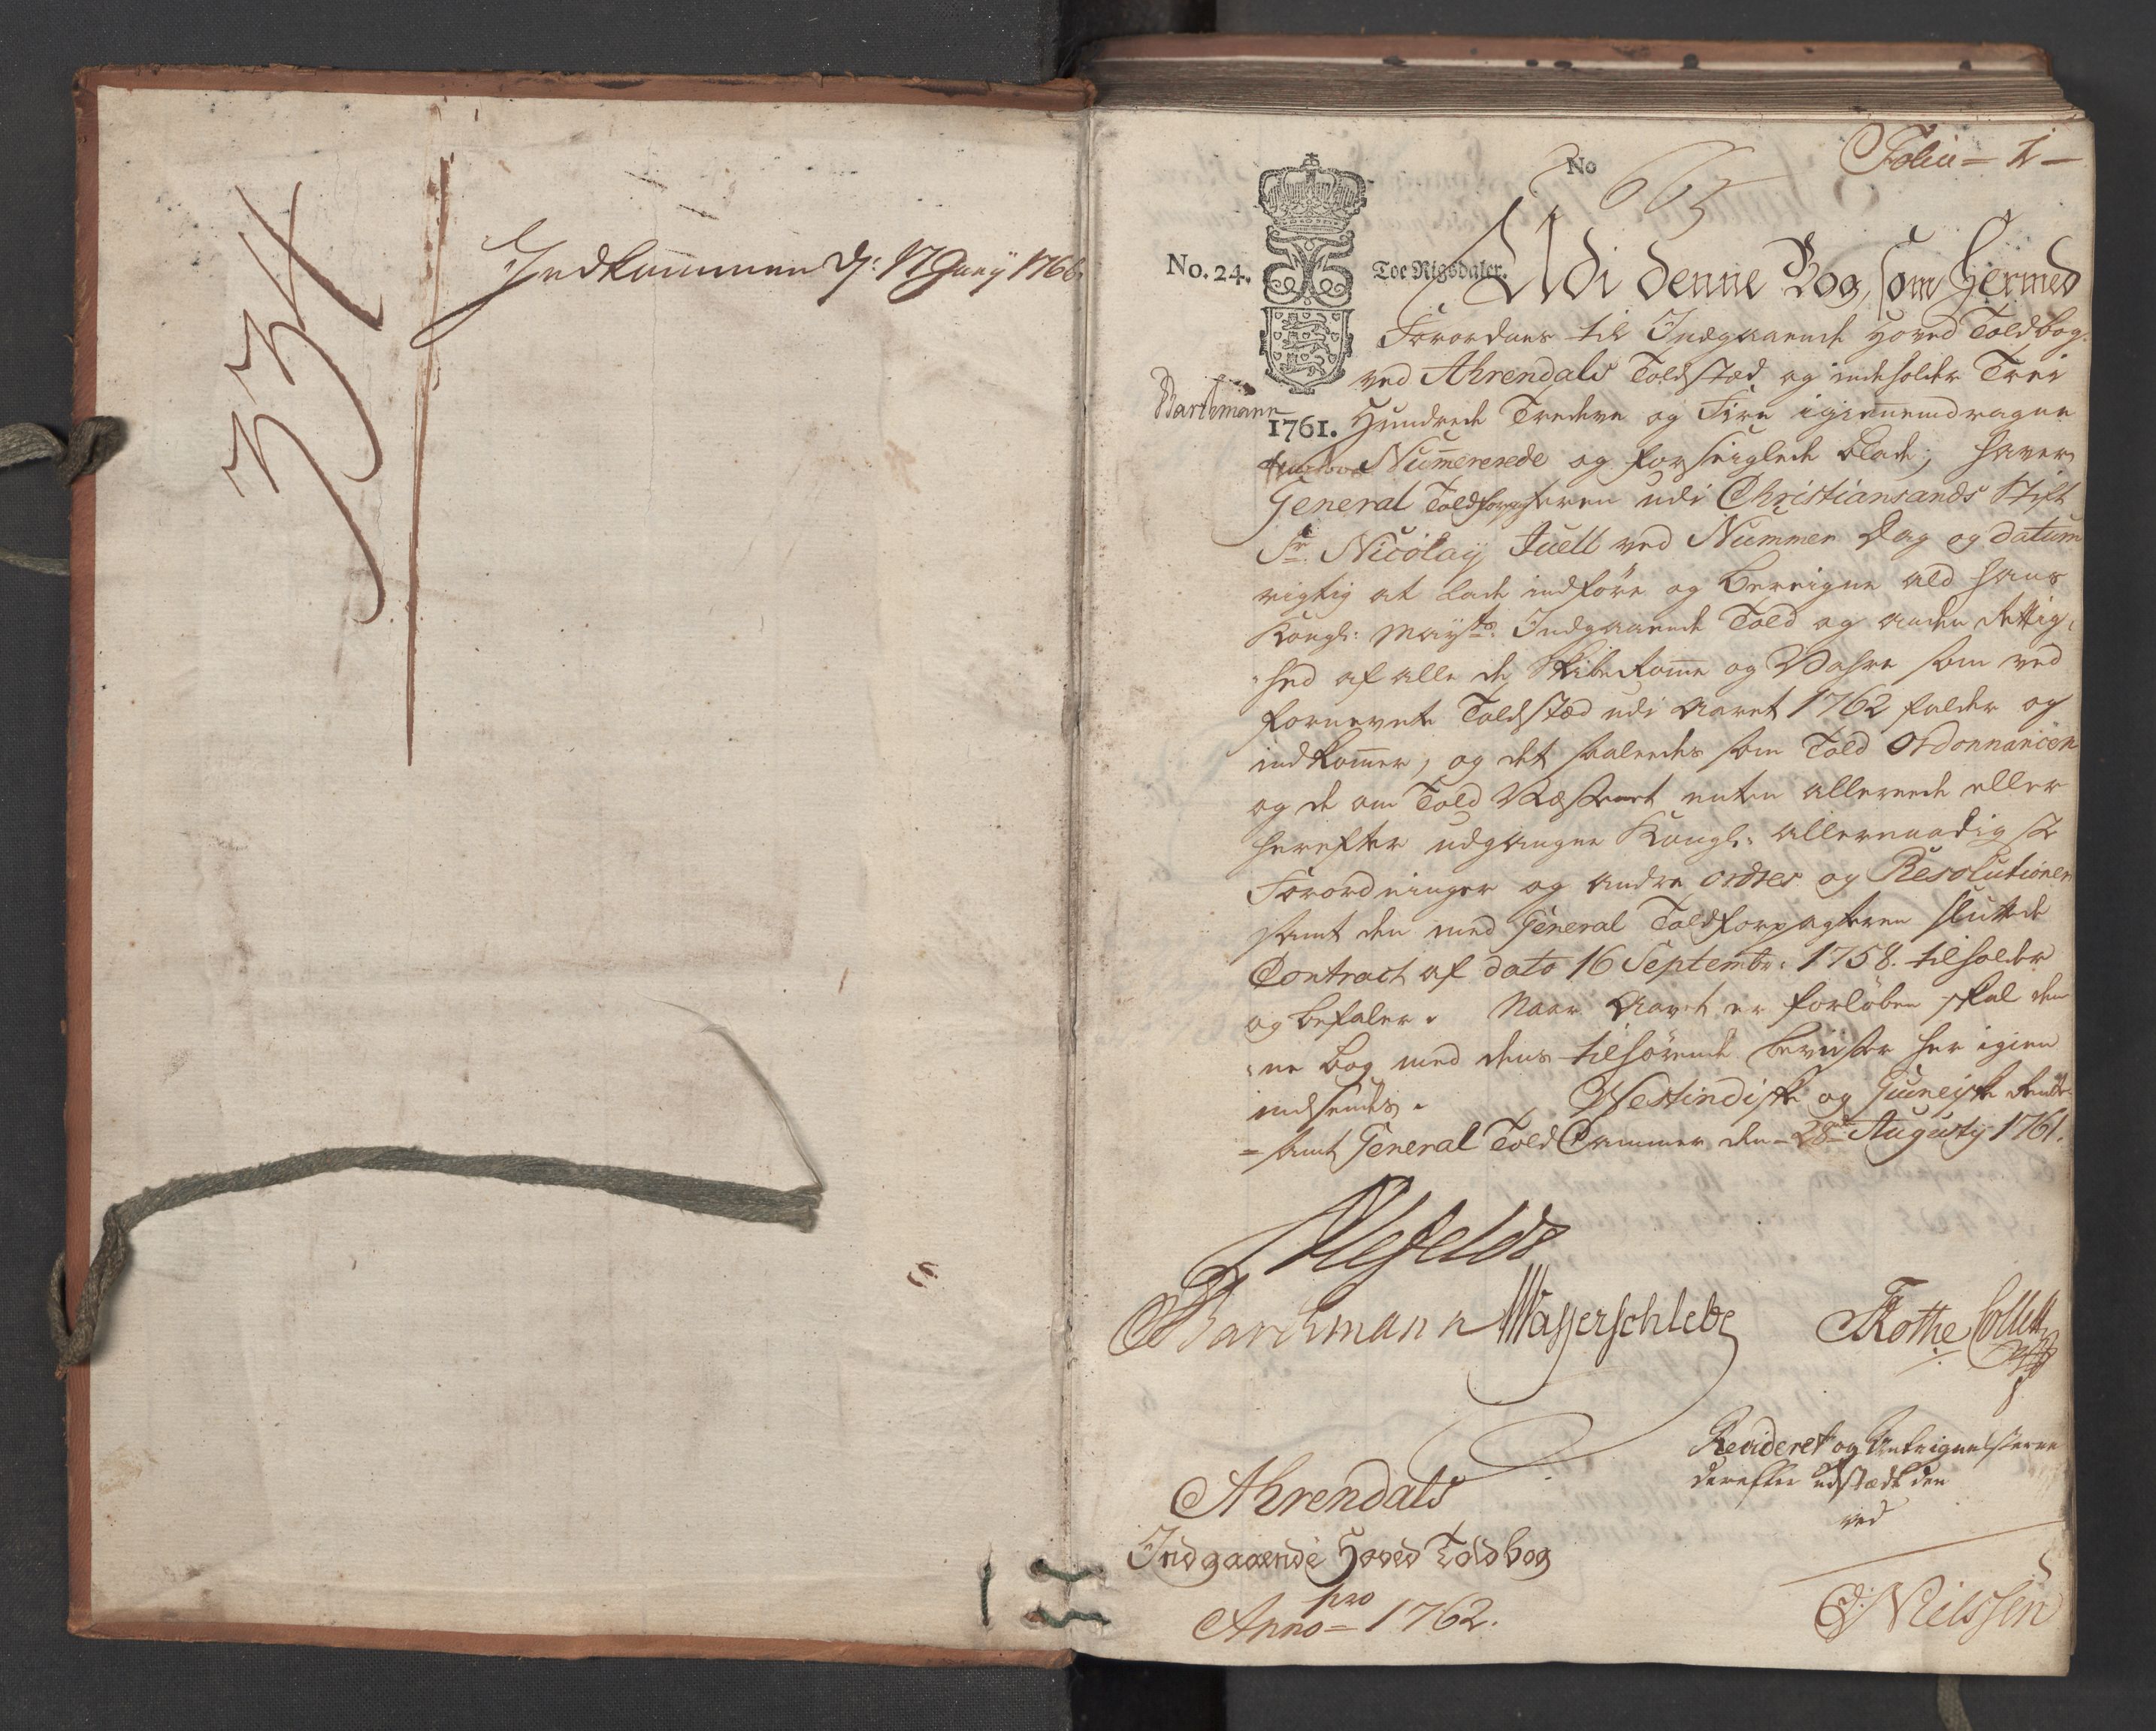 334
Indkommen d: 17 Juny 176
Folio = 1 —
No
665
No. 24.
Toe Rigsdaler.
Udi denne Bog, som hermed
Forordnes til Indgaaende Hoved Toldbog
ved Ahrendals Toldsted og indeholder Trei
Barthmann
1761.
Hundrede Tredeve og Fire igiennemdragne
Nummererede og forseiglede blade; haver
General Toldforpagteren udi Christiansands Stift
Sr. Nicolay Juell ved Nummer Dag og datum
rigtig at lade indføre og beregne ald hans
Kongl: Mayts: Indgaaende Told og anden Rettig,
,hed af alle de Skibe komme og Vahre som ved
fornevnte Toldsted udi Aaret 1762 falder og
indkommer, og det saaledes som Told Ordonnancen
og de om Told Væsenet enten allereede eller
herefter udgangne Kongl: allernaadigste
Forordninger og andre Ordres og Resolutioner
samt den med General Toldforpagteren sluttede
Contract af dato 16 Septembr: 1758. tilholder
og befaler. Naar Aaret er forløben skal den
,ne bog med dens tilhørende beviiser her igien
indsendes. Westindiske og Guineiske Rente
= samt General Told Cammer den 28de Augusty 1761.
Ahlefeldt
Barthmann
Wasserschlebe
Rothe
Collett
Revideret og Anteignelserne
derefter udstædt den
ved
Ahrendals
Indgaaende Hoved Toldbog
pro
Anno = 1762.
Nielssen